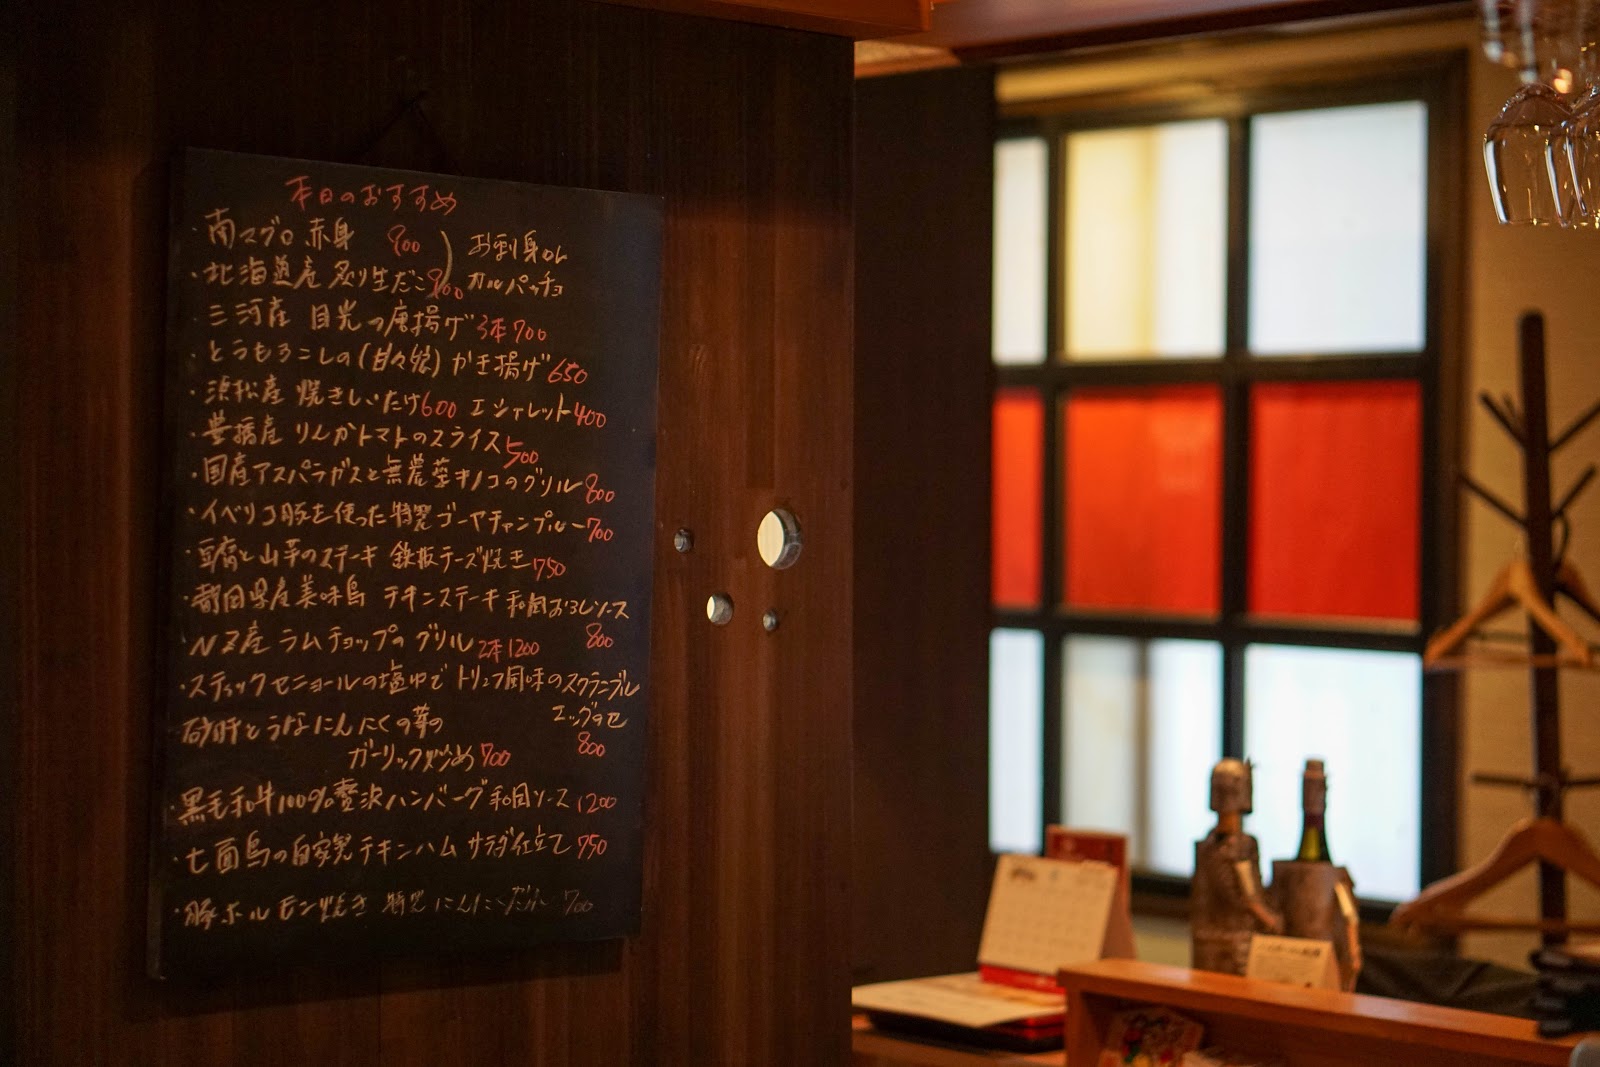 本日のおすすめ
・南マグロ 赤身 900 お刺身 or
・北海道産 炙り生だこ 900 カルパッチョ
・三河産 目光の唐揚げ 3本700
・とうもろこしの(甘々娘)かき揚げ 650
・浜松産 焼きしいたけ600 エシャレット400
・豊橋産 りんかトマトのスライス 500
・国産アスパラガスと無農薬キノコのグリル 800
・イベリコ豚を使った特製ゴーヤチャンプルー 700
・豆腐と山芋のステーキ 鉄板チーズ焼き 750
・静岡県産美味鳥 チキンステーキ 和風おろしソース
800
・NZ産 ラムチョップのグリル 2本1200
・スティックセニョールの塩ゆで トリュフ風味のスクランブル
エッグのせ
800
砂肝とうなにんにくの芽の
ガーリック炒め 700
・黒毛和牛100%贅沢ハンバーグ 和風ソース 1200
・七面鳥の自家製チキンハム サラダ仕立て 750
・豚ホルモン焼き 特製にんにくだれ 700